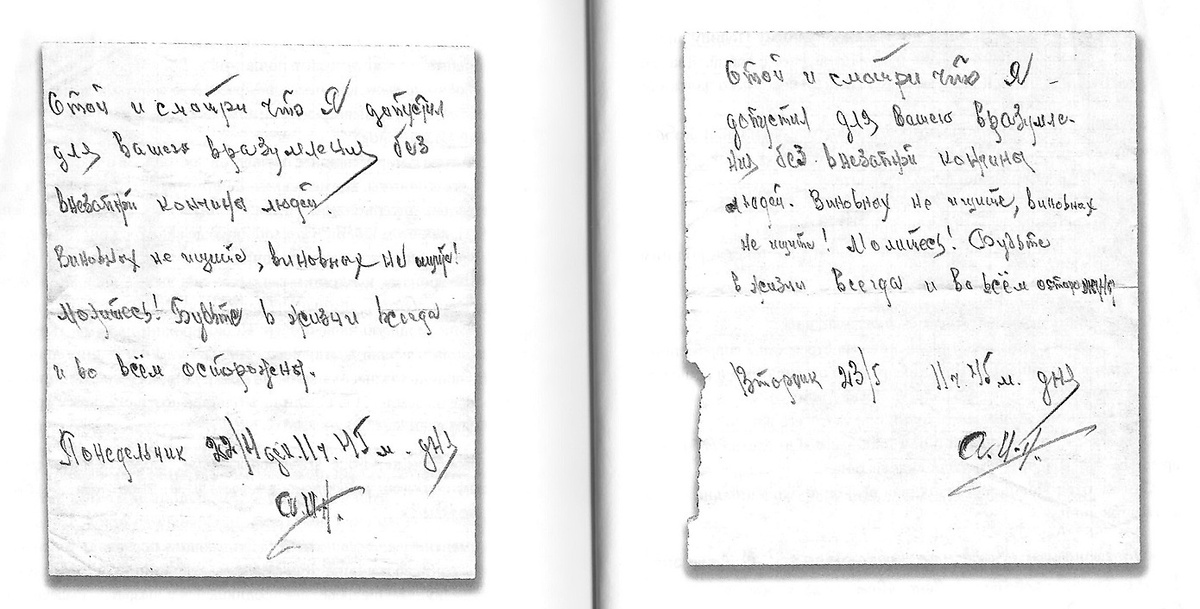 Стой и смотри что Я допустил
для вашего вразумления без
внезапной кончины людей.
Виновных не ищите, виновных не ищите!
Молитесь! Будьте в жизни всегда
и во всём осторожны.
Понедельник 22/4 дек. 11 ч. 45 м. дня
А.И.Н.
Стой и смотри что Я -
допустил для вашего вразумле-
ния без внезапной кончины
людей. Виновных не ищите, виновных
не ищите! Молитесь! Будьте
в жизни всегда и во всём осторожны
Вторник 23/5 11 ч. 45 м. дня
А.И.Н.